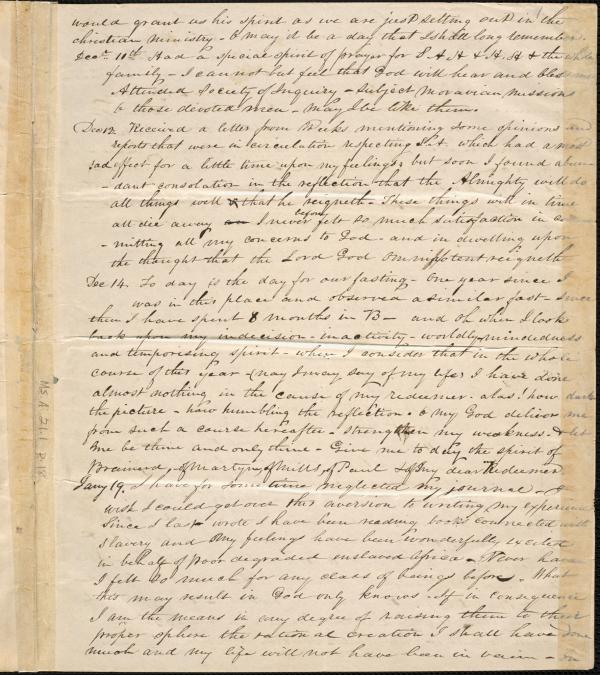 would grant us his spirit as we are just setting out in the
christian ministry - O may it be a day that I shall long remember
Decr 10th Had a special spirit of prayer for S A H & the whole
family - I can not but feel that God will hear and bless
Attended Society of Inquiry - subject Moravian missions
& those devoted men - may I be like them.
Dec 12. Received a letter from Weeks mentioning some opinions and
reports that were in circulation respecting which had a most
sad effect for a little time upon my feelings; but soon I found abun-
- dant consolation in the reflection that the Almighty will do
all things well & that he reigneth - These things will in time
all die away I never before felt so much satisfaction in com-
- mitting all my concerns to God - and in dwelling upon
the thought that the Lord God omnipotent reigneth
Dec 14. To day is the day for our fasting - One year since I
was in this place and observed a similar fast - since
then I have spent 8 months in B - and Oh when I look
back upon my indecision - inactivity - worldly mindedness
and temporising spirit - when I consider that in the whole
course of this year - (nay I may say of my life) I have done
almost nothing in the cause of my redeemer - alas! how dark
the picture - how humbling the reflection - O my God deliver me
from such a course hereafter - strengthen my weakness - & let
me be thine and only thine - Give me to day the spirit of
Brainerd, of Martyn, of Mills, of Paul & of my dear Redeemer
Jany 19. I have for some time neglected my journal - I
wish I could get over this aversion to writing my experience
Since I last wrote I have been reading books connected with
slavery and my feelings have been wonderfully excited
in behalf of poor degraded enslaved Africa - Never have
I felt so much for any class of beings before - What
this may result in God only knows - If in consequence
I am the means in any degree of raising them to their
proper sphere the rational creation I shall have done
much and my life will not have been in vain - on
Ms A 2.1.1 p. 18